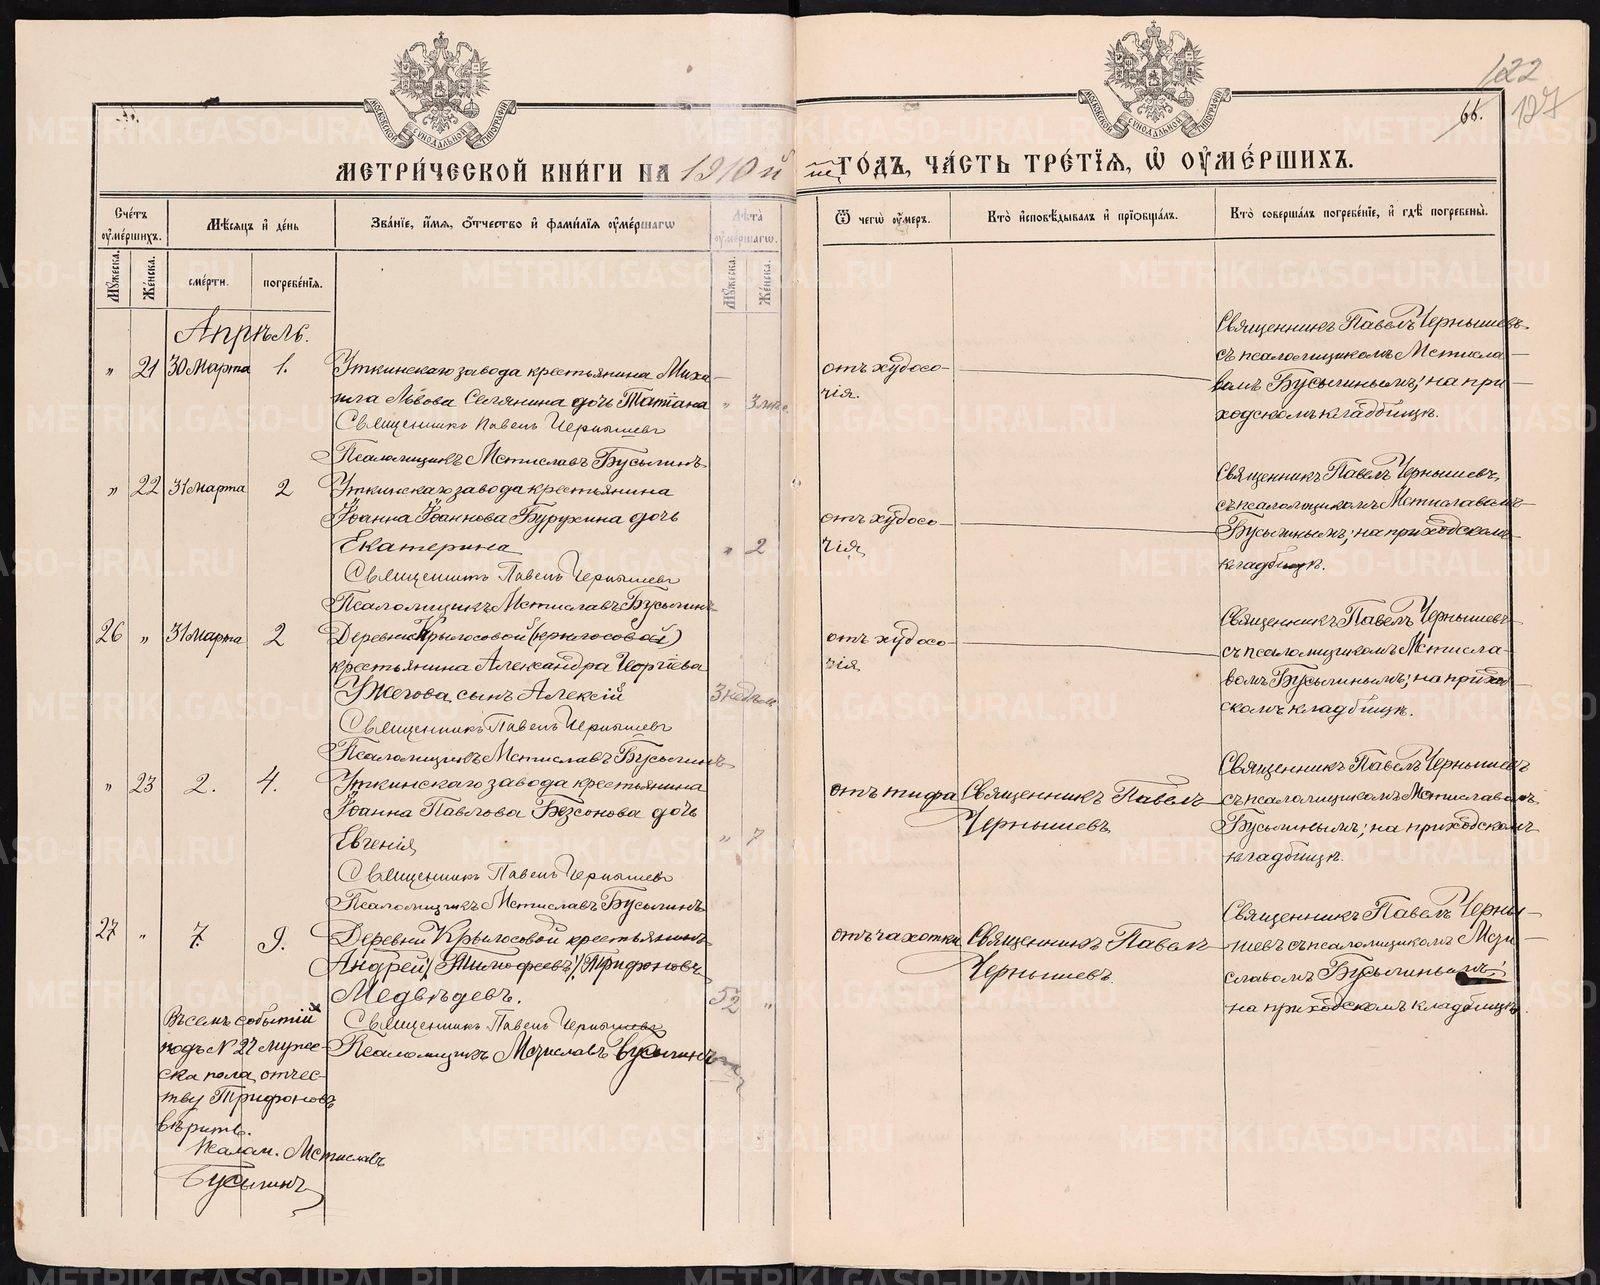 122
66. 127
МЕТРИ́ЧЕСКОЙ КНИ́ГИ НА 1910й ГО́ДЪ, ЧА́СТЬ ТРЕ́ТІѦ, Ѡ҆ ОУ҆МЕ́РШИХЪ.
Сче́тъ оу҆ме́ршихъ.
Мѣ́сяцъ и҆ де́нь
Зва́ніе, и҆́мя, ѻ҆́тчество и҆ фами́лія оу҆ме́ршагѡ
Лѣ́та оу҆ме́ршагѡ.
Ѿ чегѡ̀ оу҆́меръ.
Кто̀ и҆сповѣ́дывалъ и҆ прїобща́лъ.
Кто̀ соверша́лъ погребе́ніе, и҆ гдѣ̀ погребены̀.
Мꙋ́жеска.
Же́нска.
сме́рти.
погребе́нія.
Мꙋ́жеска.
Же́нска.
Апрѣль.
" 21 30 Марта 1.
Уткинскаго завода крестьянина Миха-
ила Львова Селянина дочь Татіана " 3 лѣт.
Священникъ Павелъ Чернышевъ
Псаломщикъ Мстиславъ Бусыгинъ
отъ худосо-
чія.
Священникъ Павелъ Чернышевъ
съ псаломщикомъ Мстисла-
вомъ Бусыгинымъ; на при-
ходскомъ кладбищѣ.
" 22 31 Марта 2
Уткинскаго завода крестьянина
Іоанна Іоаннова Бурухина дочь
Екатерина " 2
Священникъ Павелъ Чернышевъ
Псаломщикъ Мстиславъ Бусыгинъ
отъ худосо-
чія
Священникъ Павелъ Чернышевъ,
съ псаломщикомъ Мстиславомъ
Бусыгинымъ; на приходскомъ
кладбищѣ.
26 " 31 Марта 2
Деревни Крылосовой
крестьянина Александра Георгіева
Ужегова, сынъ Алексій 3 недѣли
Священникъ Павелъ Чернышевъ
Псаломщикъ Мстиславъ Бусыгинъ
отъ худосо-
чія
Священникъ Павелъ Чернышевъ
съ псаломщикомъ Мстисла-
вомъ Бусыгинымъ; на приход-
скомъ кладбищѣ.
" 23 2. 4.
Уткинскаго завода крестьянина
Іоанна Павлова Безсонова дочь
Евгенія " 7
Священникъ Павелъ Чернышевъ
Псаломщикъ Мстиславъ Бусыгинъ
отъ тифа
Священникъ Павелъ
Чернышевъ
Священникъ Павелъ Чернышевъ
съ псаломщикомъ Мстиславомъ
Бусыгинымъ; на приходскомъ
кладбищѣ.
27 " 7. 9.
Деревни Крылосовой крестьянинъ
Андрей Тимофеевъ Трифоновъ
Медвѣдевъ. 52 "
Священникъ Павелъ Чернышевъ
Псаломщикъ Мстиславъ Бусыгинъ
отъ чахотки
Священникъ Павелъ
Чернышевъ.
Священникъ Павелъ Черны-
шевъ съ псаломщикомъ Мсти-
славомъ Бусыгинымъ;
на приходскомъ кладбищѣ.
Въ семъ событіи
подъ № 27 муже-
ска пола, отчес-
тву Трифоновъ
вѣрить.
Псалом. Мстиславъ
Бусыгинъ
METRIKI.GASO-URAL.RU